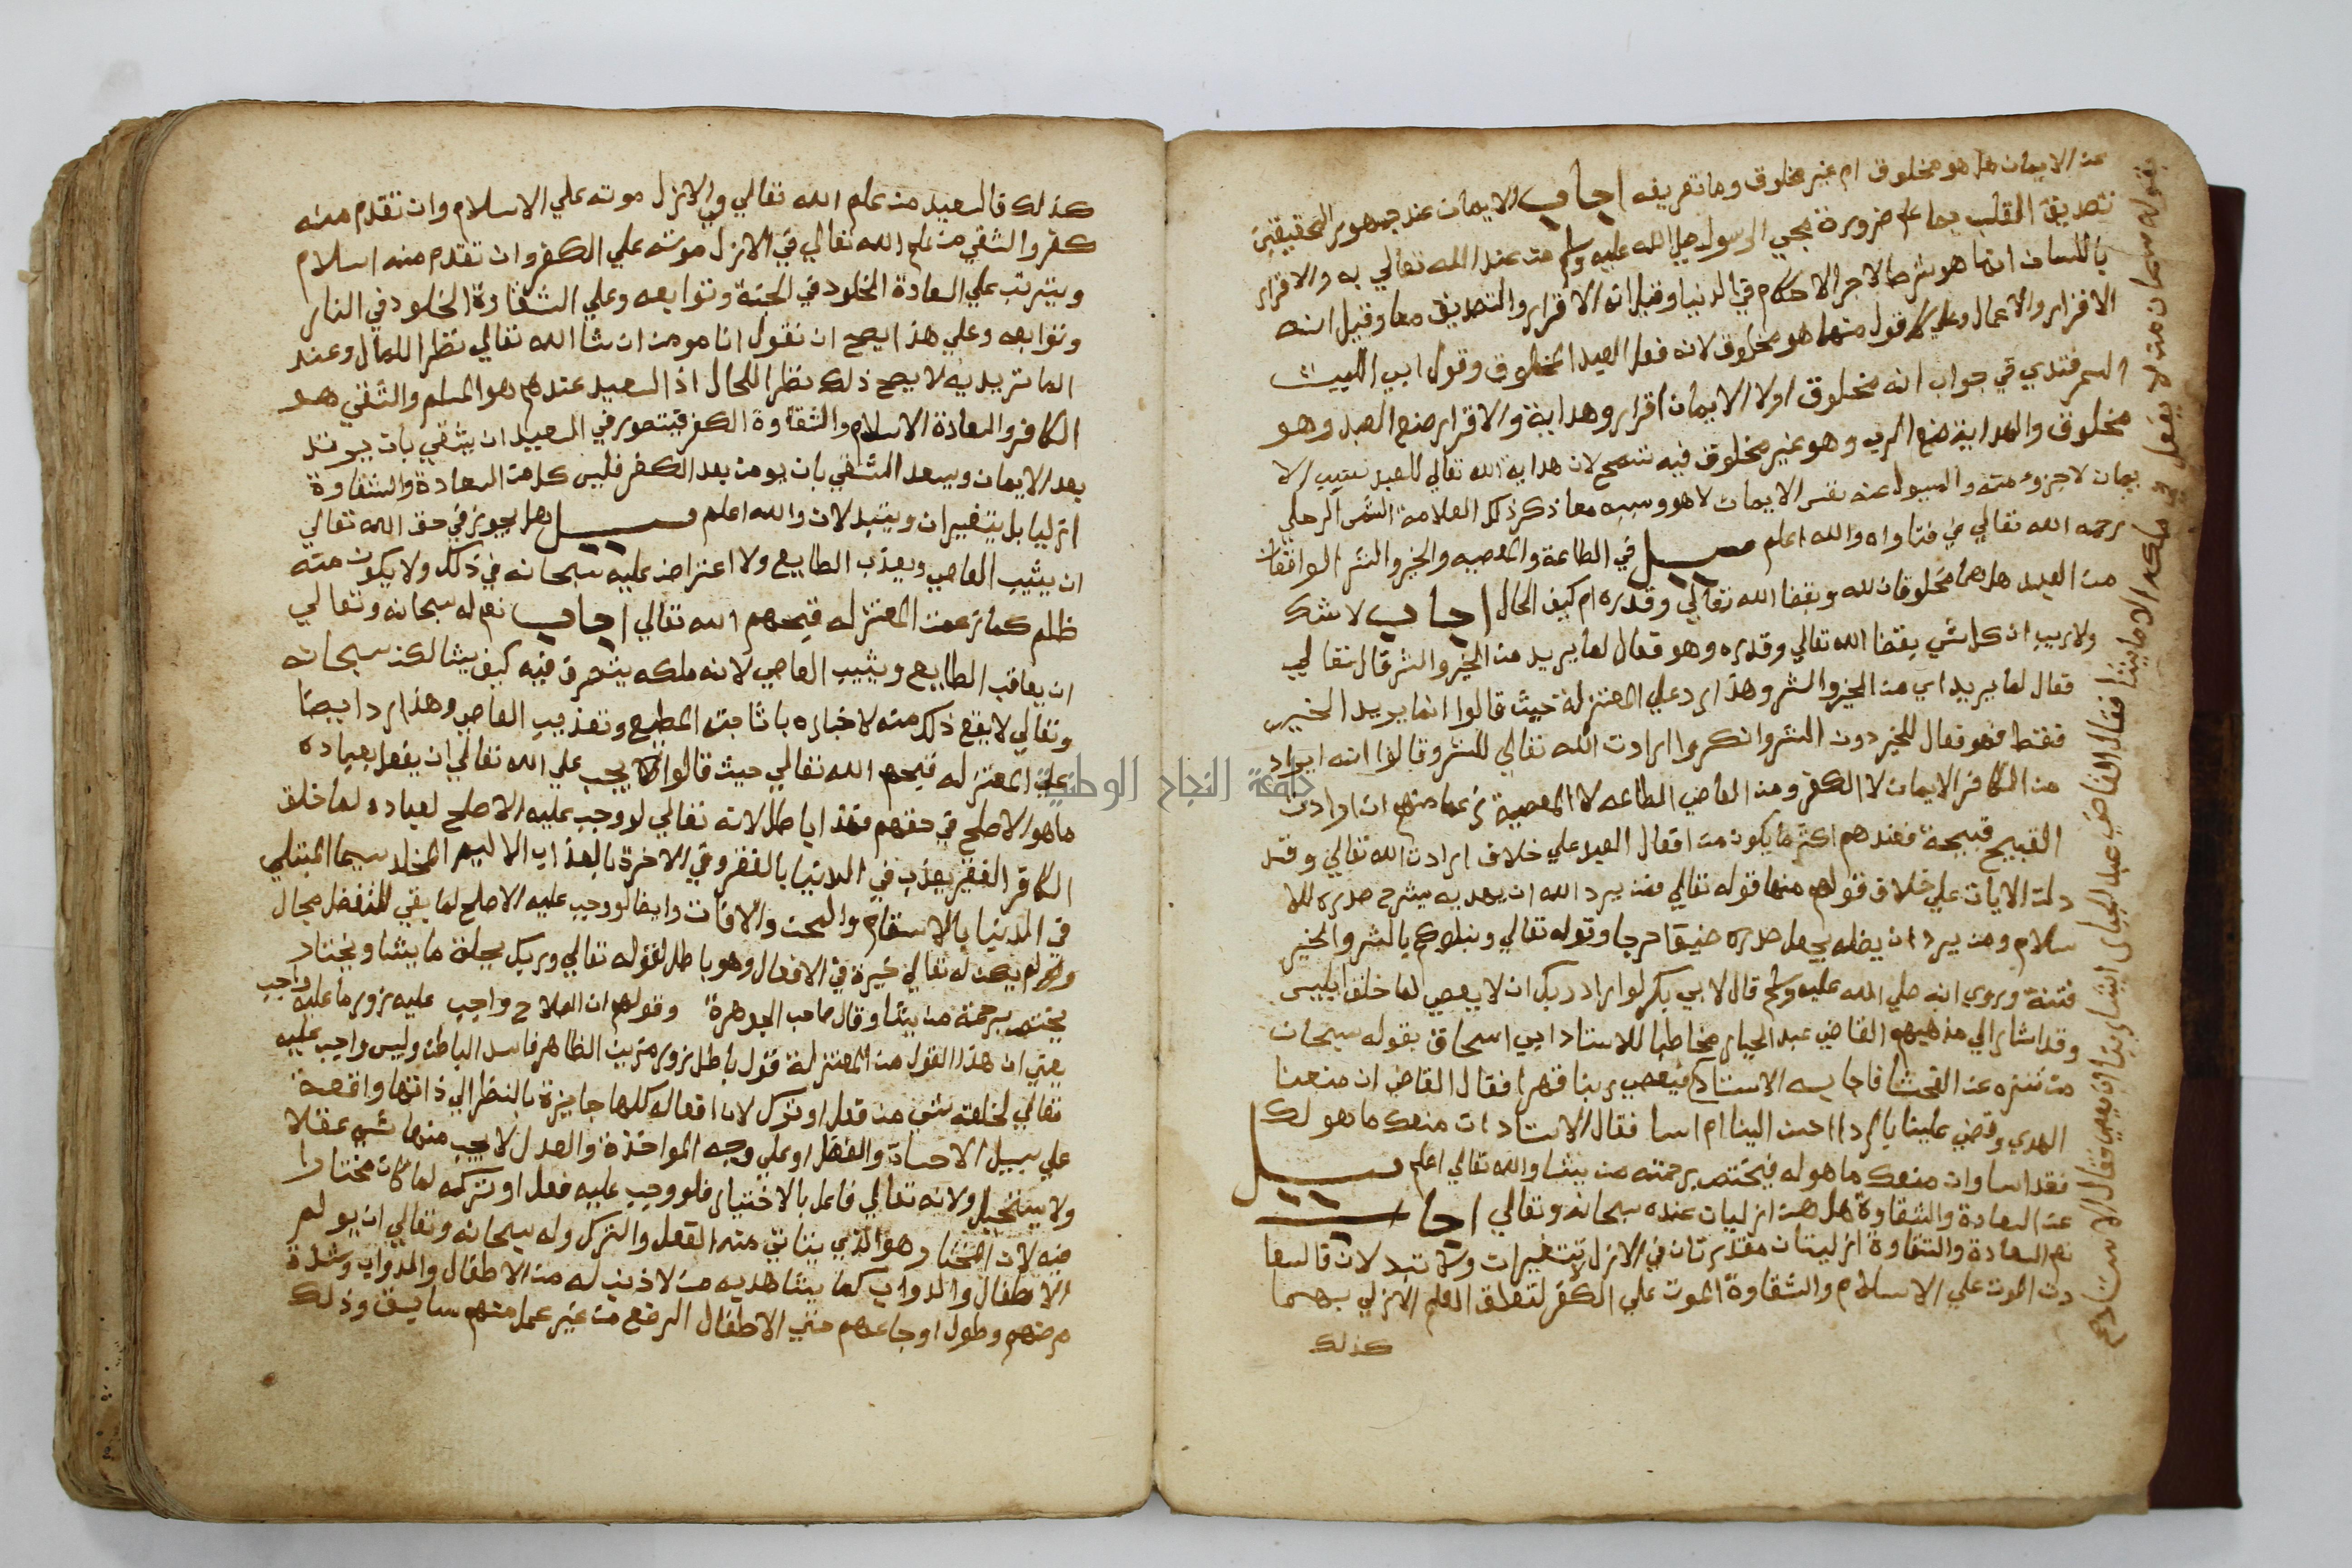 عن الايمان هل هو مخلوق ام غير مخلوق وما تعريفه اجاب الايمان عند جمهور المحققين
تصديق القلب بما علم ضرورة مجي الرسول صلي الله عليه وسلم من عند الله تعالي به والاقرار
باللسان انما هو شرط لاجر الاحكام في الدنيا وقيل انه الاقرار والتصديق معا وقيل انه
الاقرار والاعمال وعلي كل قول منها هو مخلوق لانه فعل العبد المخلوق وقول ابي الليث
السمرقندي في جواب انه مخلوق اولا الايمان اقرار وهداية والاقرار صنع العبد وهو
مخلوق والهداية صنع الرب وهو غير مخلوق فيه تسمح لان هداية الله تعالي للعبد سبب الا
يمان لا جزء منه والمسول عنه نفس الايمان لا هو وسببه معا ذكر ذلك العلامة الشمس الرملي
رحمه الله تعالي في فتاواه والله اعلم سيل في الطاعة والمعصيه والخير والشر الواقعات
من العبد هل هما مخلوقان لله وبقضا الله تعالي وقدره ام كيف الحال اجاب لا شك
ولا ريب ان كل شي بقضا الله تعالي وقدره وهو فعال لما يريد من الخير والشر قال تعالي
فعال لما يريد اي من الخير والشر وهذا رد علي المعتزلة حيث قالوا انما يريد الخير
فقط فهو فعال للخير دون الشر وانكروا ارادت الله تعالي للشر وقالوا انه اراد
من الكافر الايمان لا الكفر ومن العاصي الطاعه لا المعصية زعما منهم ان ارادت
القبيح قبيحة فعندهم اكثر ما يكون من افعال العبد علي خلاف ارادت الله تعالي وقد
دلت الايات علي خلاف قولهم منها قوله تعالي فمن يرد الله ان يهديه يشرح صدره للا
سلام ومن يرد ان يضله يجعل صدره ضيقا حرجا وقوله تعالي ونبلوكم بالشر والخير
فتنة وروي انه صلي الله عليه وسلم قال لابي بكر لو اراد ربك ان لا يعصي لما خلق ابليس
وقد اشار الي مذهبهم القاضي عبد الجبار مخاطبا للاستاد ابي اسحاق بقوله سبحان
من تنزه عن الفحشا فاجابه الاستاد فيعصي ربنا قهرا فقال القاضي ان منعنا
الهدي وقضي علينا بالردا احسن الينا ام اسا فقال الاستاد ان منعك ما هو لك
فقد اسا وان منعك ما هو له فيختص برحمته من يشا والله تعالي اعلم سيل
عن السعادة والشقاوة هل هن ازليان عنده سبحانه وتعالي اجاب
نعم السعادة والشقاوة ازليتان مقدرتان في الازل لا تتغيرات ولا تتبدلان فالسعا
دت الموت علي الاسلام والشقاوة الموت علي الكفر لتعلق العلم الازلي بهما
كذلك
بقوله سبحان من لا يفعل في ملكه الا ما يشا فقال القاضي عبد الجبار ايشا ربنا ان يعصي فقال الاستاد
كذلك فالسعيد من علم الله تعالي في الازل موته علي الاسلام وان تقدم منه
كفر والشقي من علم الله تعالي في الازل موته علي الكفر وان تقدم منه اسلام
ويترتب علي السعادة الخلود في الجنة وتوابعه وعلي الشقاوة الخلود في النار
وتوابعه وعلي هذا يصح ان تقول انا مومن ان شا الله تعالي نظرا للمال وعند
الماتريديه لا يصح ذلك نظرا للحال اذ السعيد عندهم هو المسلم والشقي هو
الكافر والسعادة الاسلام والشقاوة الكفر فيتصور في السعيد ان يشقي بان يرتد
بعد الايمان ويسعد الشقي بان يومن بعد الكفر فليس كل من السعادة والشقاوة
ازليا بل يتغيران ويتبدلان والله اعلم سيل هل يجوز في حق الله تعالي
ان يثيب العاصي ويعذب الطايع ولا اعتراض عليه سبحانه في ذلك ولا يكون منه
ظلم كما زعمت المعتزله قبحهم الله تعالي اجاب نعم له سبحانه وتعالي
ان يعاقب الطايع ويثيب العاصي لانه ملكه يتصرف فيه كيف يشا لكن سبحانه
وتعالي لا يقع ذلك منه لاخباره باثابة المطيع وتعذيب العاصي وهذا رد ايضا
علي المعتزله قبحهم الله تعالي حيث قالوا يجب علي الله تعالي ان يفعل بعباده
ما هو الاصلح في حقهم وهذا باطل لانه تعالي لو وجب عليه الاصلح لعباده لما خلق
الكافر الفقير يعذب في الدنيا بالفقر وفي الاخرة بالعذاب الاليم المخلد سيما المبتلي
في الدنيا بالاسقام والمحن والافات وايضا لو وجب عليه الاصلح لما بقي للتفضل مجال
ولم يكن له تعالي خيرة في الافعال وهو باطل لقوله تعالي وربك يخلق ما يشا ويختار
يختص برحمته من يشا وقال صاحب الجوهرة وقولهم ان الصلاح واجب عليه زور ما عليه واجب
يعني ان هذا القول من المعتزلة قول باطل زور مزين الظاهر فاسد الباطن وليس واجب عليه
تعالي لخلقه شي من فعل او ترك لان افعاله كلها جايزة بالنظر الي ذاتها واقعة
علي سبيل الاحسان والفضل او علي وجه المواخذة والعدل لا يجب منها شي عقلا
ولا يستحيل ولانه تعالي فاعل بالاختيار فلو وجب عليه فعل او تركه لما كان مختارا
فيه لان المختار هو الذي يتاتي منه الفعل والترك وله سبحانه وتعالي ان يولم
الاطفال والدواب كما يشاهد به من لا ذنب له من الاطفال والدواب وشدة
مرضهم وطول اوجاعهم حتي الاطفال الرضع من غير عمل منهم سابق وذلك
جامعة النجاح الوطنية